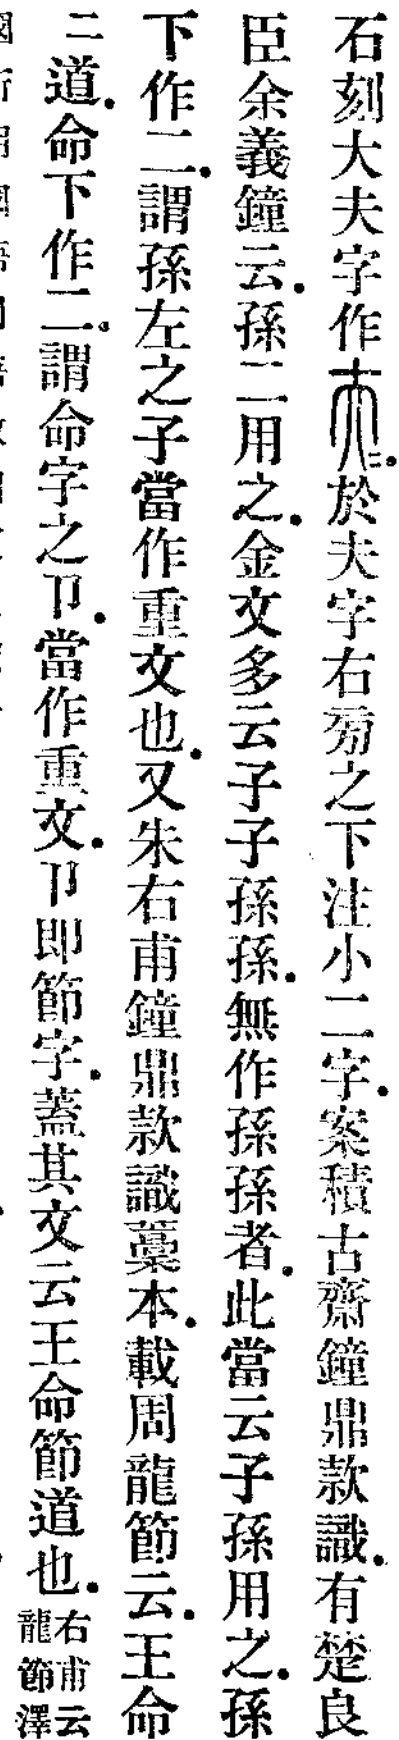 石刻大夫字作。於夫字右㫄之下注小二字。案積古齋鐘鼎款識。有楚良
臣余義鐘云。孫二用之。金文多云子子孫孫。無作孫孫者。此當云子孫用之。孫
下作二。謂孫左之子當作重文也。又朱右甫鐘鼎款識藁本。載周龍節云。王命
二道。命下作二。謂命字之卩。當作重文。卩即節字。蓋其文云王命節道也。右甫云
龍節澤